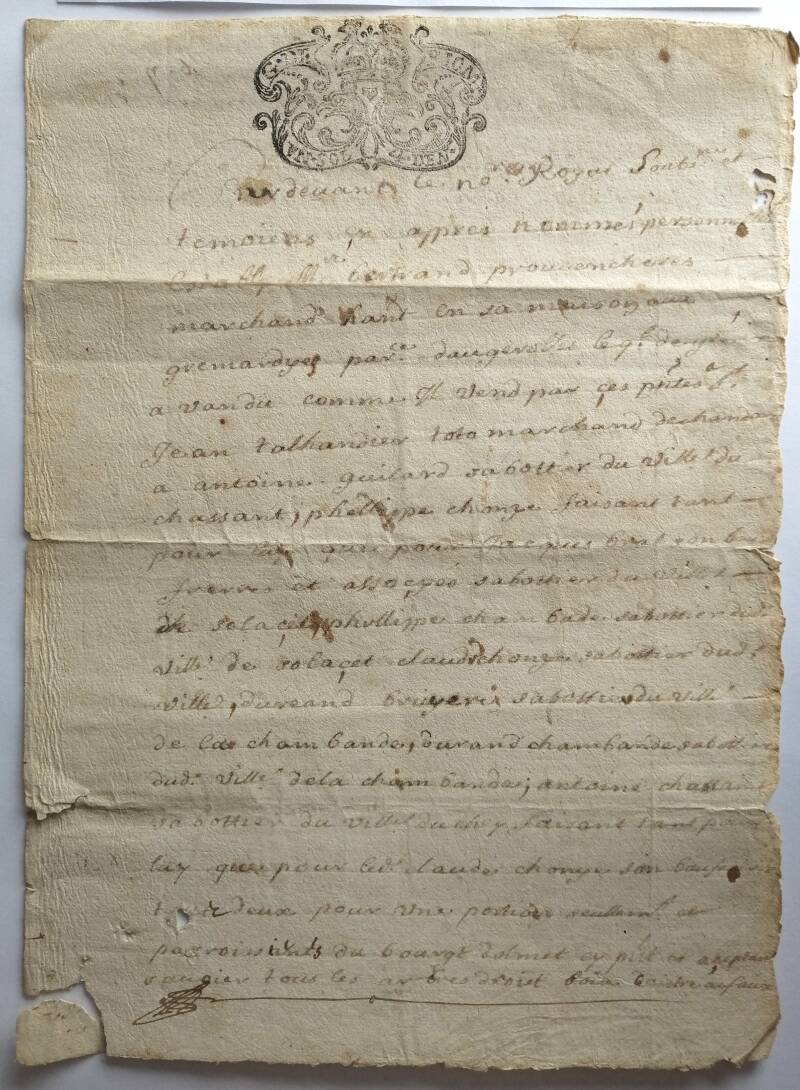 G. DE
VN. SOL 4. DEN.
Pardevant le no.re Royal Soubs.né et
temoiens cy appres nommés personn
bertrand prouvencheres
marchand hant en sa maison aux
gremardyes par.e daugerolles le q.l de gré
a vandu comme Il vend par ces p̃ntes a S.r
Jean talhandier toto marchand de
a antoine guilard sabottier du vill.e du
chassant, phellippe chonze faisant tant
pour luy que pour Jacques son beau
frerre et assoçyés sabottier du vill.e
de solaçet, phellippe chambade sabottier dud.
vill.e de solaçet claude chonze sabottier dud.
ville, durand bruyere sabottier du vill.e
de la chambande, durand chambande sabottier
dud. vill.e de la chambande, antoine chassant
sabottier du vill.e du faisant tant pour
luy que pour led. claude chonze son beaufrere
deux pour une portion seullem.t et
parroissients du bourgt dolmet cy p̃nt et acceptant
tous les arbres droiet bois